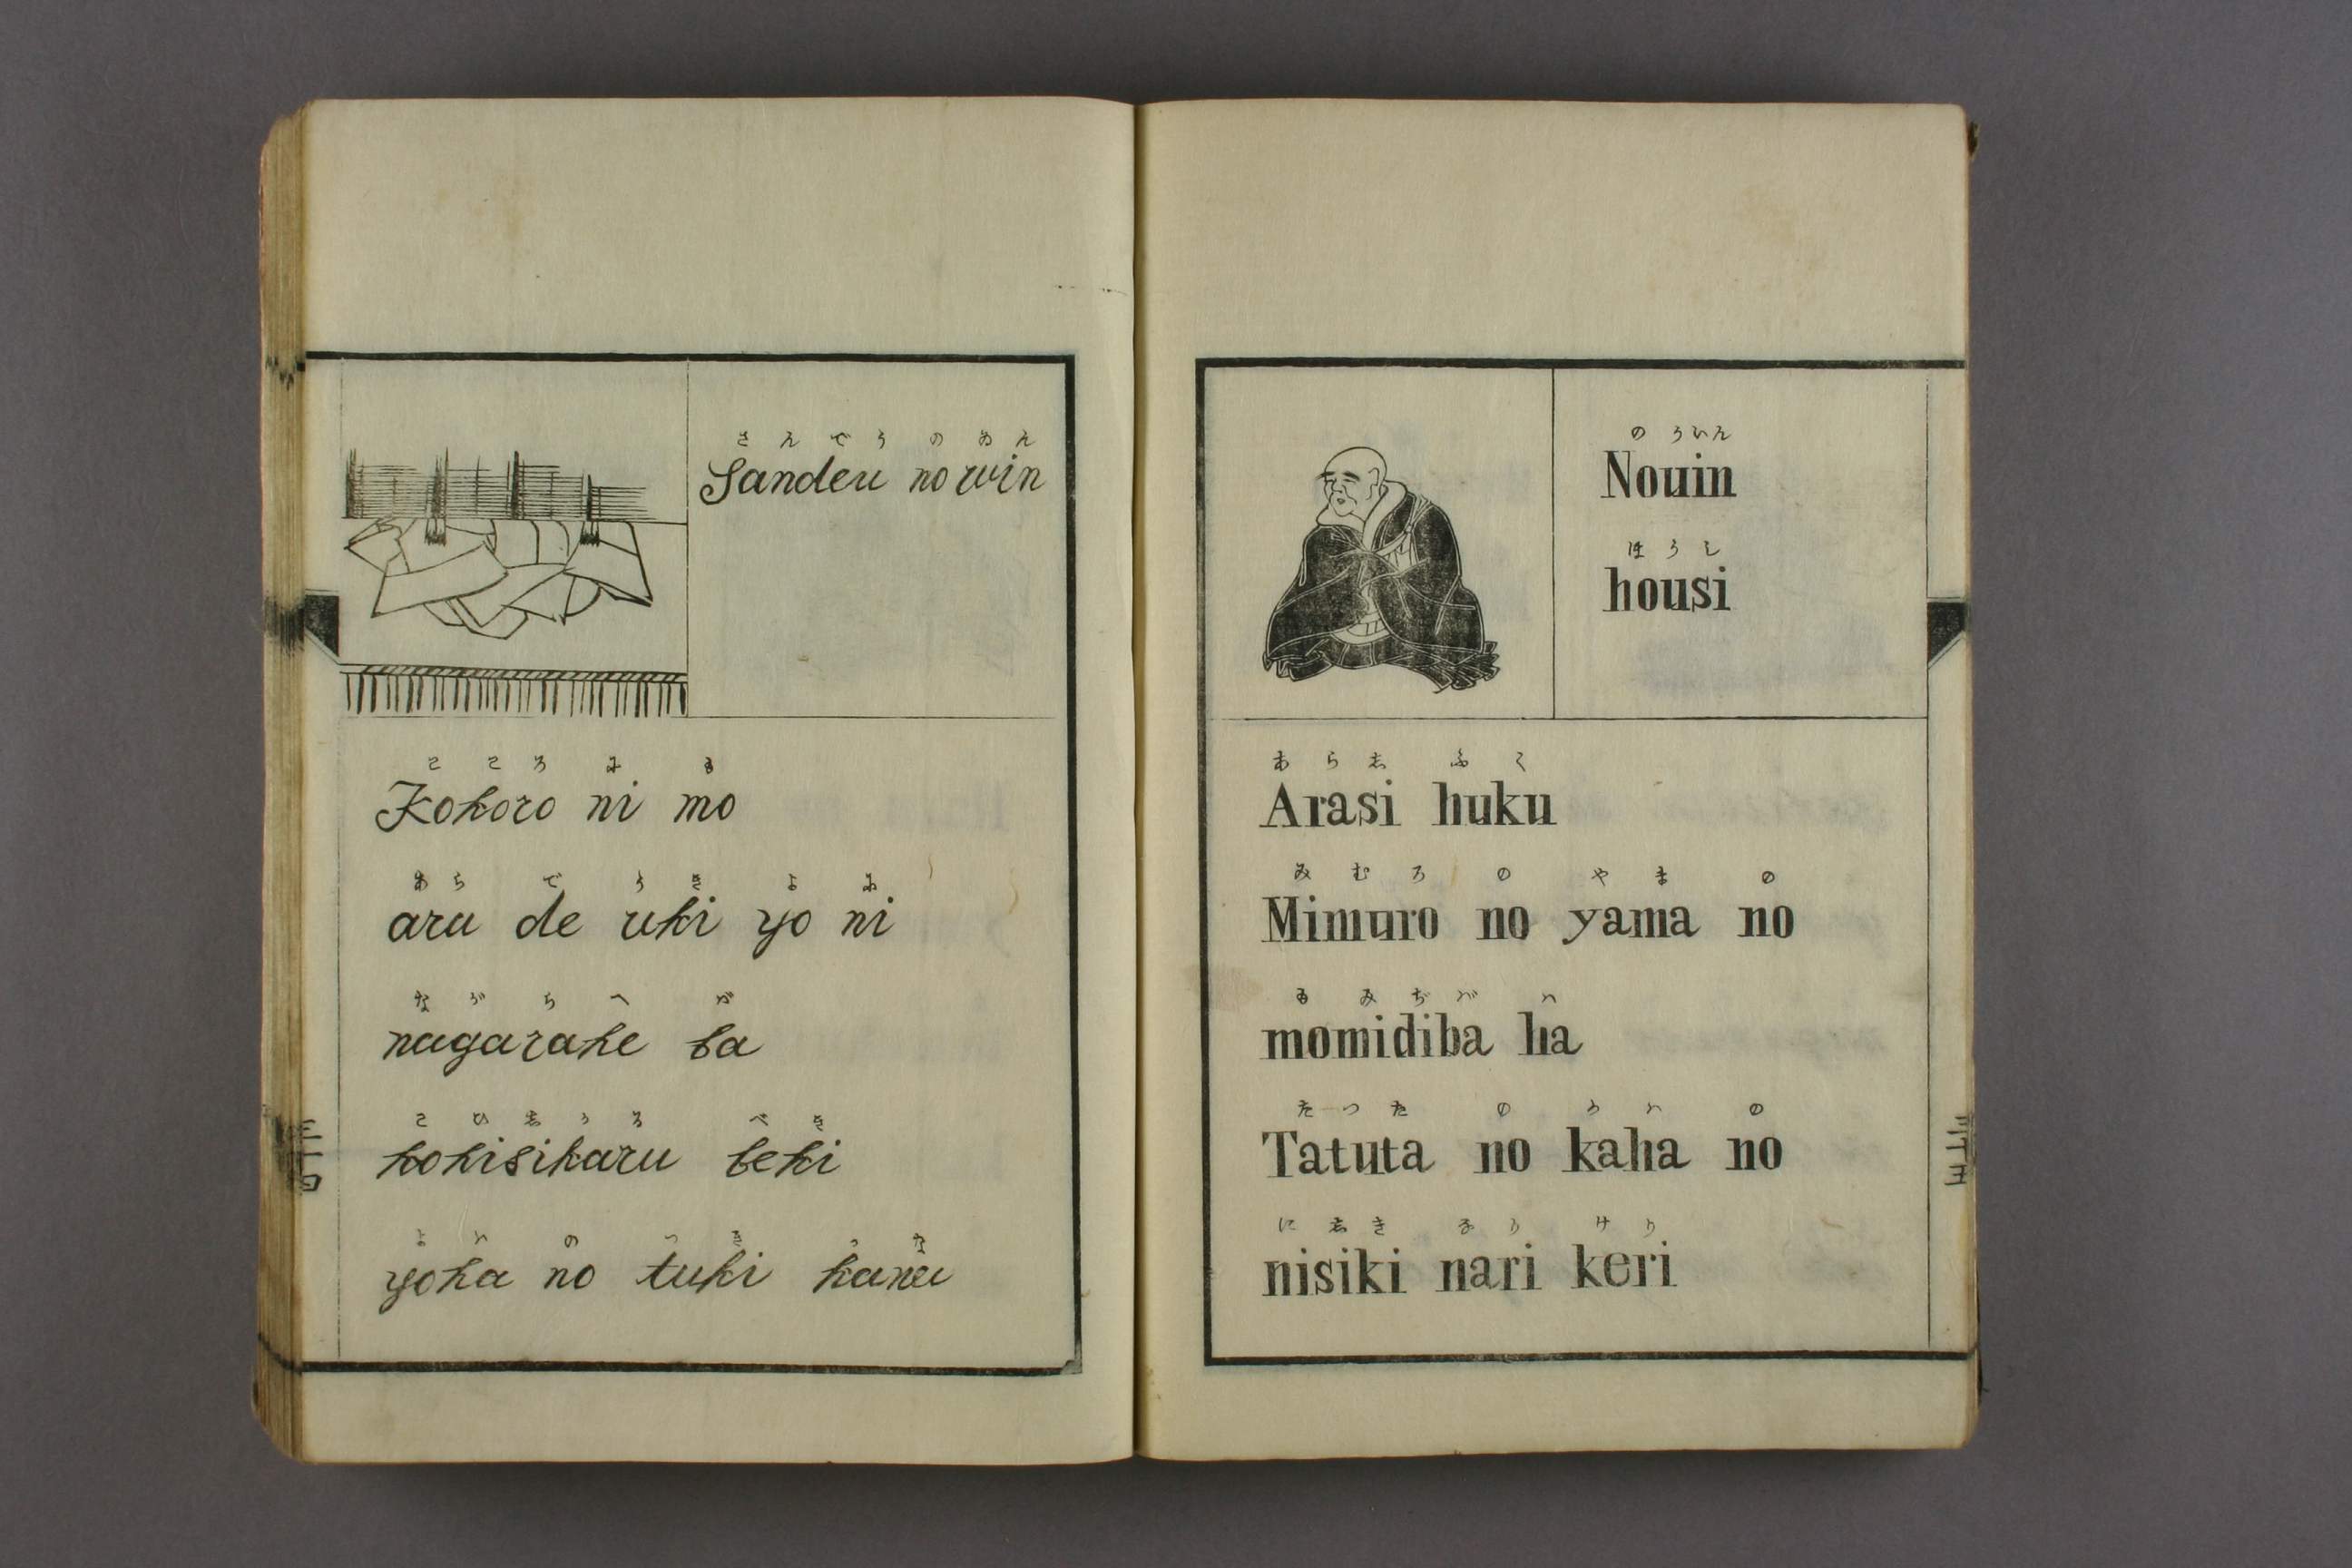 さんでうのゐん
Sandeu no win
こころにも
Kokoro ni mo
あらでうきよに
aru de uki yo ni
ながらへば
nagarahe ba
こひしかるべき
kohisikaru beki
よはのつきかな
yoha no tuki kana
のういん
Nouin
ほうし
housi
あらしふく
Arasi huku
みむろのやまの
Mimuro no yama no
もみぢばハ
momidiba ha
たつたのかハの
Tatuta no kaha no
にしきなりけり
nisiki nari keri